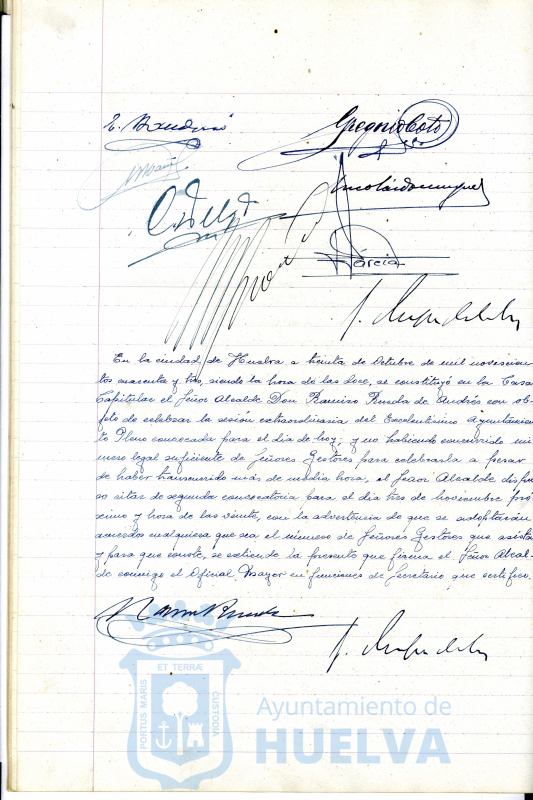 E. Bandera
Gregorio Coto
O. Delgado
García
En la ciudad de Huelva a treinta de Octubre de mil novecien-
tos cuarenta y tres, siendo la hora de las doce, se constituyó en la Casa
Capitular el Señor Alcalde Don Ramiro Rueda de Andrés con ob-
jeto de celebrar la sesión extraordinaria del Excelentísimo Ayuntamien-
to Pleno convocada para el día de hoy; y no habiendo concurrido nú-
mero legal suficiente de Señores Gestores para celebrarla a pesar
de haber transcurrido más de media hora, el Señor Alcalde dispu-
so citar de segunda convocatoria para el día tres de noviembre pró-
ximo y hora de las veinte, con la advertencia de que se adoptarán
acuerdos cualquiera que sea el número de Señores Gestores que asista.
Y para que conste, se extiende la presente que firma el Señor Alcal-
de conmigo el Oficial Mayor en funciones de Secretario que certifico.
Ramiro Rueda
ET TERRÆ
PORTUS MARIS
CUSTODIA
Ayuntamiento de
HUELVA